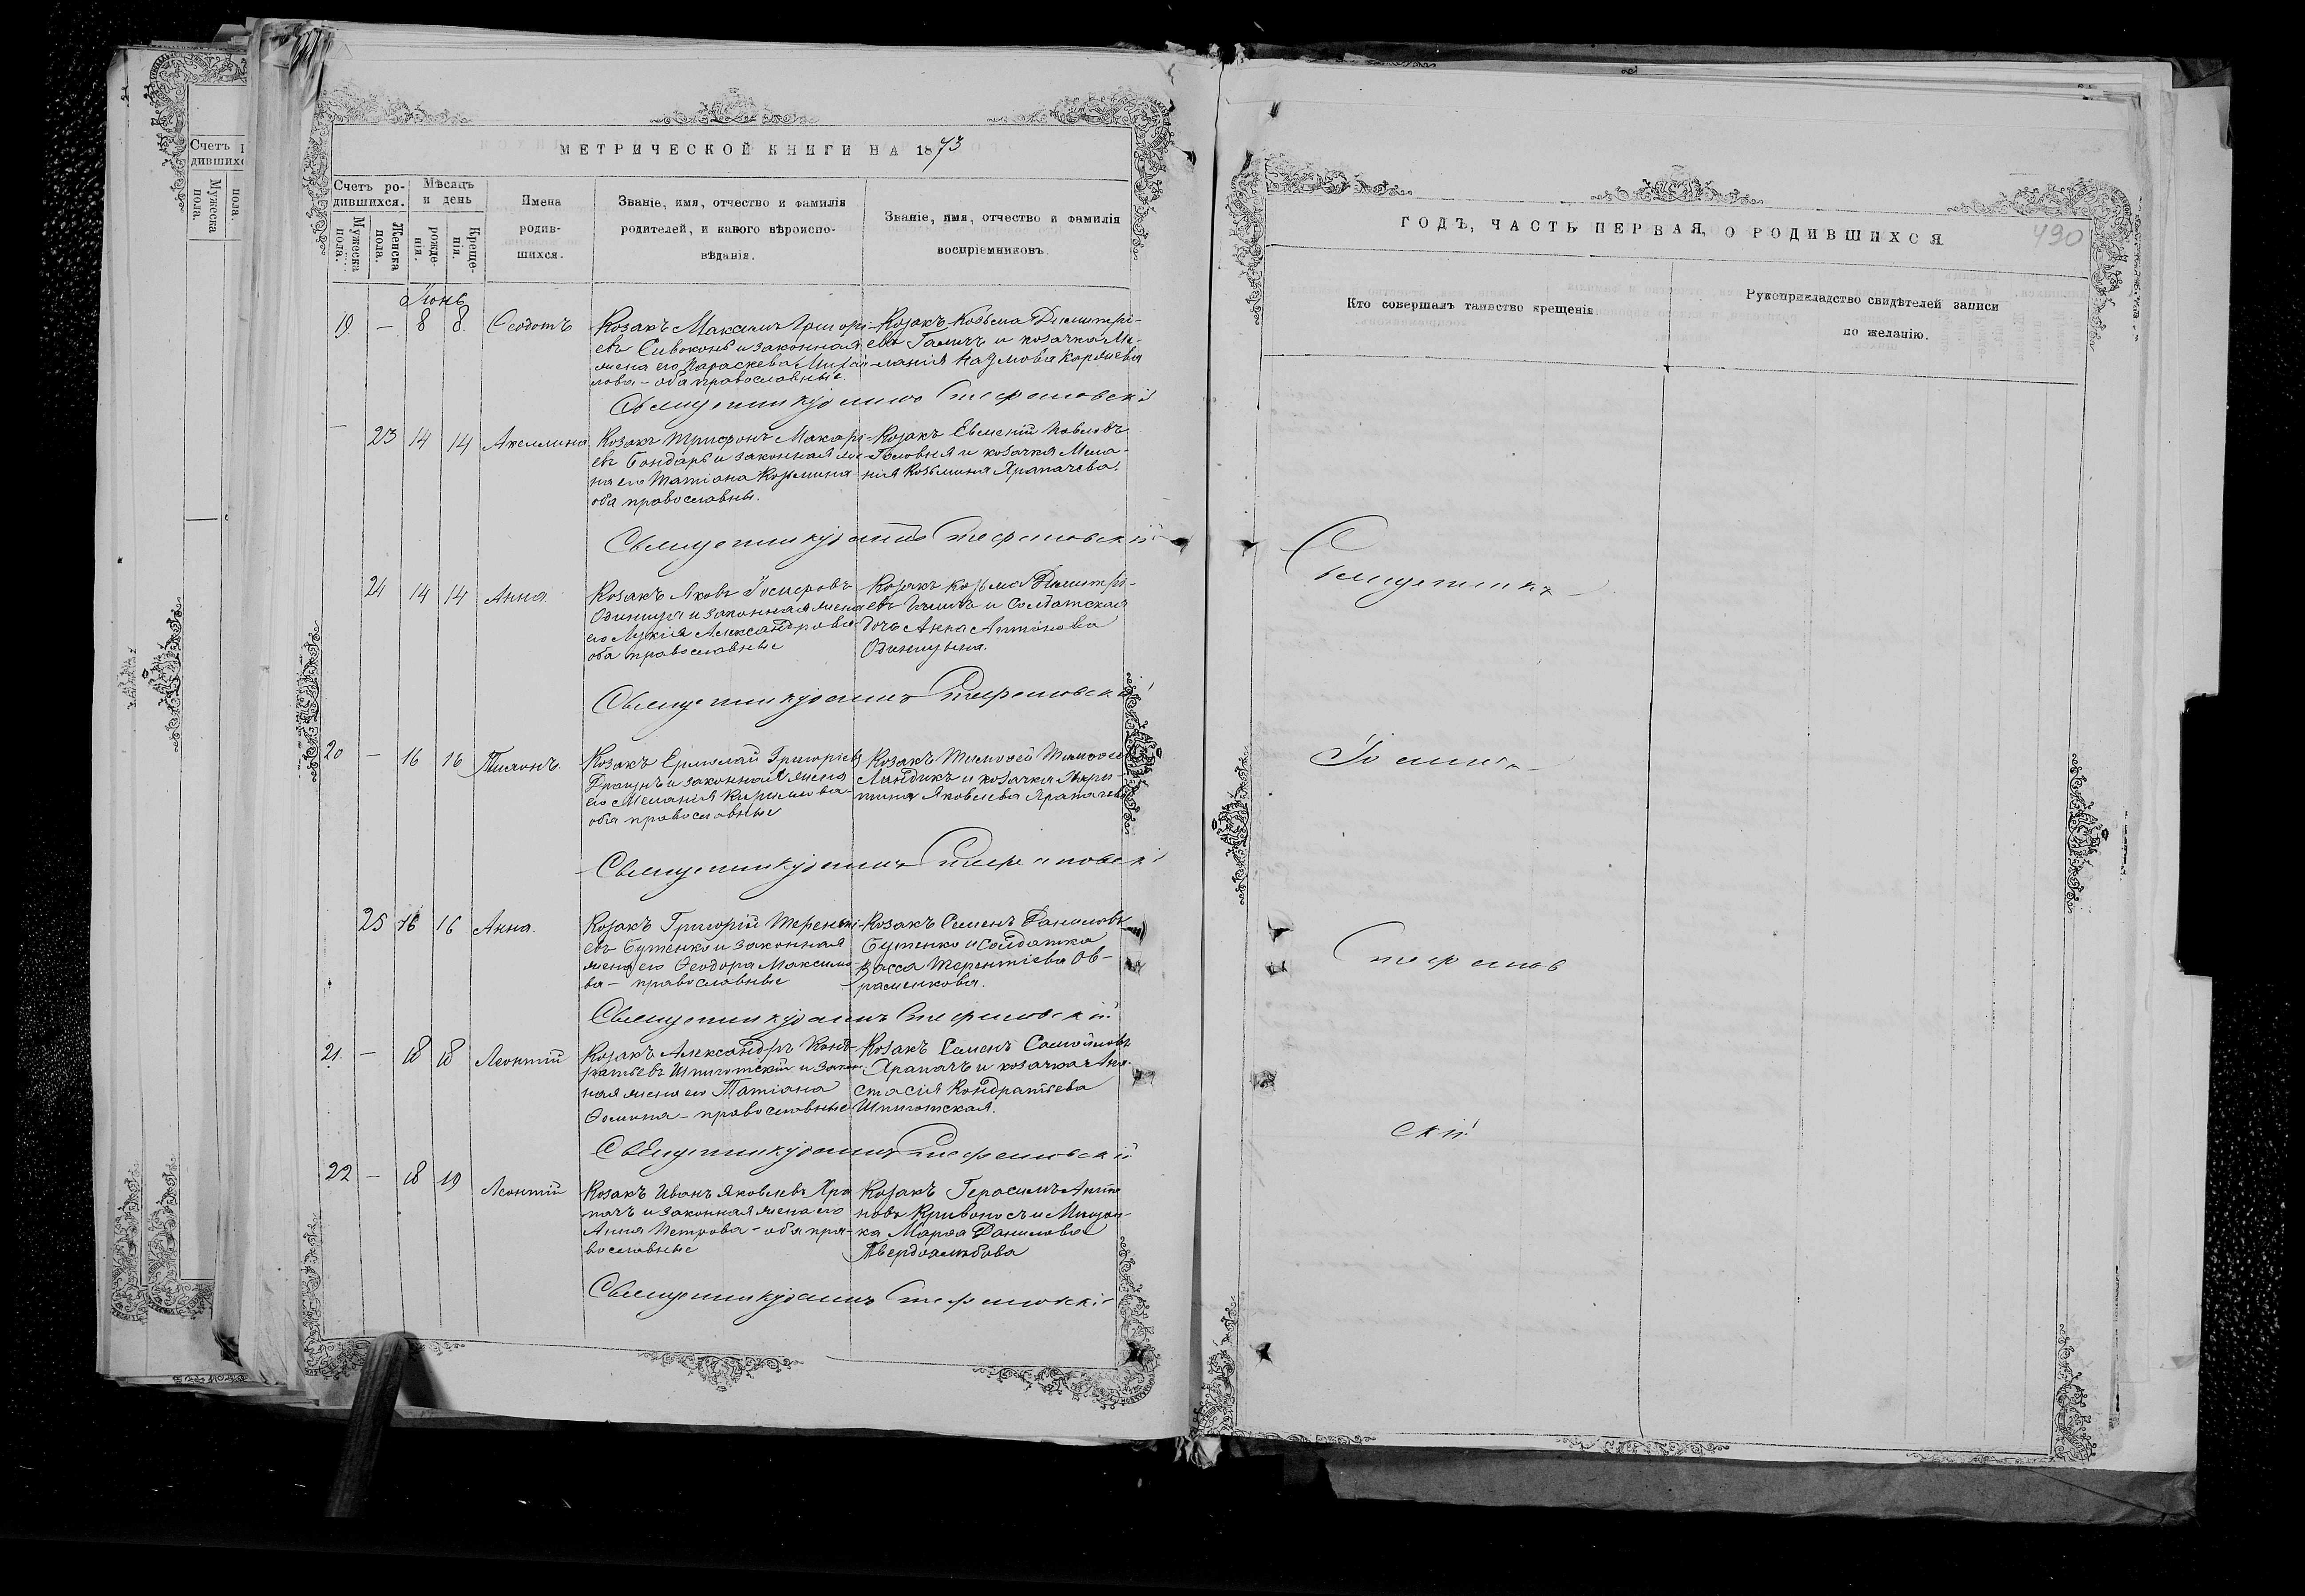 МЕТРИЧЕСКОЙ КНИГИ НА 1873
Счетъ ро-
дившихся.
Мужеска
пола.
Женска
пола.
Мѣсяцъ
и день
рожде-
нія.
Креще-
нія.
Имена
родив-
шихся.
Званіе, имя, отчество и фамилія
родителей, и какого вѣроиспо-
вѣданія.
Званіе, имя, отчество и фамилія
воспріемниковъ.
Іюнь
19 — 8 8. Ѳеодотъ
Козакъ Максимъ Григорі-
евъ Сивоконь и законная
жена его Параскева Михаи-
лова – оба православные.
Козакъ Козьма Димитрі-
евъ и козачка Ме-
ланія Наумова
Священникъ Іоаннъ Стефановскій
— 23 14 14 Акеллина
Козакъ Трифонъ Макарі-
евъ Бондарь и законная же-
на его Татіана Козьмина
оба православны.
Козакъ Евменій Павловъ
и козачка Мела-
нія Козьмина Храпачева.
Священникъ Іоаннъ Стефановскій
24 14 14 Анна
Козакъ Яковъ Іосифовъ
Одинецъ и законная жена
его Лукія Александрова
оба православные
Козакъ Козьма Димитрі-
евъ и Солдатская
дочь Анна Антонова
Священникъ Іоаннъ Стефановскій
20 — 16 16 Тихонъ.
Козакъ Ермолай Григорьевъ
и законная жена
его Меланія Кириллова
оба православные
Козакъ Тимофей
и козачка
Яковлева Храпачева
Священникъ Іоаннъ Стефановскій
25 16 16 Анна.
Козакъ Григорій Теренті-
евъ Бутенко и законная
жена его Ѳеодора Максимо-
ва – православные
Козакъ Семенъ Даниловъ
Бутенко и Солдатка
Васса Терентіева Ов-
раменкова.
Священникъ Іоаннъ Стефановскій
21. — 18 18 Леонтій
Козакъ Александръ Конд-
ратьевъ Шпиготскій и закон-
ная жена его Татіана
Ѳомина – православные
Козакъ Семенъ Самойловъ
Храпачъ и козачка Ана-
стасія Кондратьева
Шпиготская.
Священникъ Іоаннъ Стефановскій
22 — 18 19 Леонтій
Козакъ Иванъ Яковлевъ Хра
пачъ и законная жена его
Анна Петрова – оба пра-
вославные
Козакъ Герасимъ Анто
новъ Кривоносъ и Мещан-
ка Марѳа Данилова
Твердохлѣбова
Священникъ Іоаннъ Стефановскій
ГОДЪ, ЧАСТЬ ПЕРВАЯ, О РОДИВШИХСЯ
490
Кто совершалъ таинство крещенія
Рукоприкладство свидѣтелей записи
по желанію.
Священникъ
Іоаннъ
Стефанов
скій
Счетъ
дивших
Мужеска
пола.
пола.